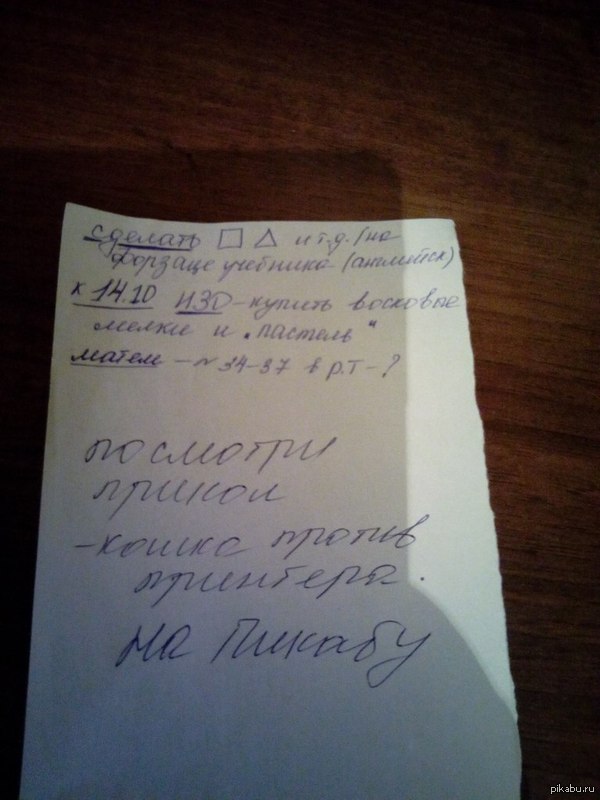 сделать □ △ и т.д. (на
форзаце учебника (английск)
к 14.10 ИЗО - купить восковые
мелки и „пастель“
матем - № 34-37 в р.т - ?
посмотри
прикол
- кошка против
принтера.
на Пикабу
pikabu.ru